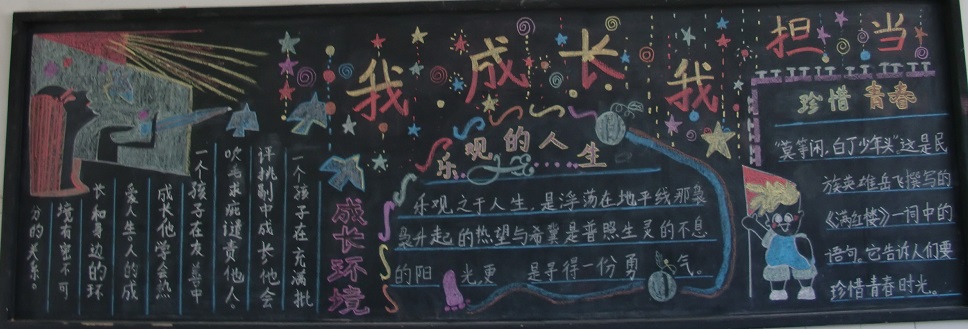 我成长我担当
成长环境
一个孩子在充满批
评挑剔中成长他会
吹毛求疵谴责他人。
一个孩子在友善中
成长他学会热
爱人生。人的成
长和身边的环
境有密不可
分的关系。
乐观的人生
乐观之于人生，是浮荡在地平线那袅
袅升起的热望与希冀是普照生灵的不息
的阳光，更是寻得一份勇气。
珍惜青春
"莫等闲，白了少年头"这是民
族英雄岳飞撰写的
《满红楼》一词中的
语句。它告诉人们要
珍惜青春时光。